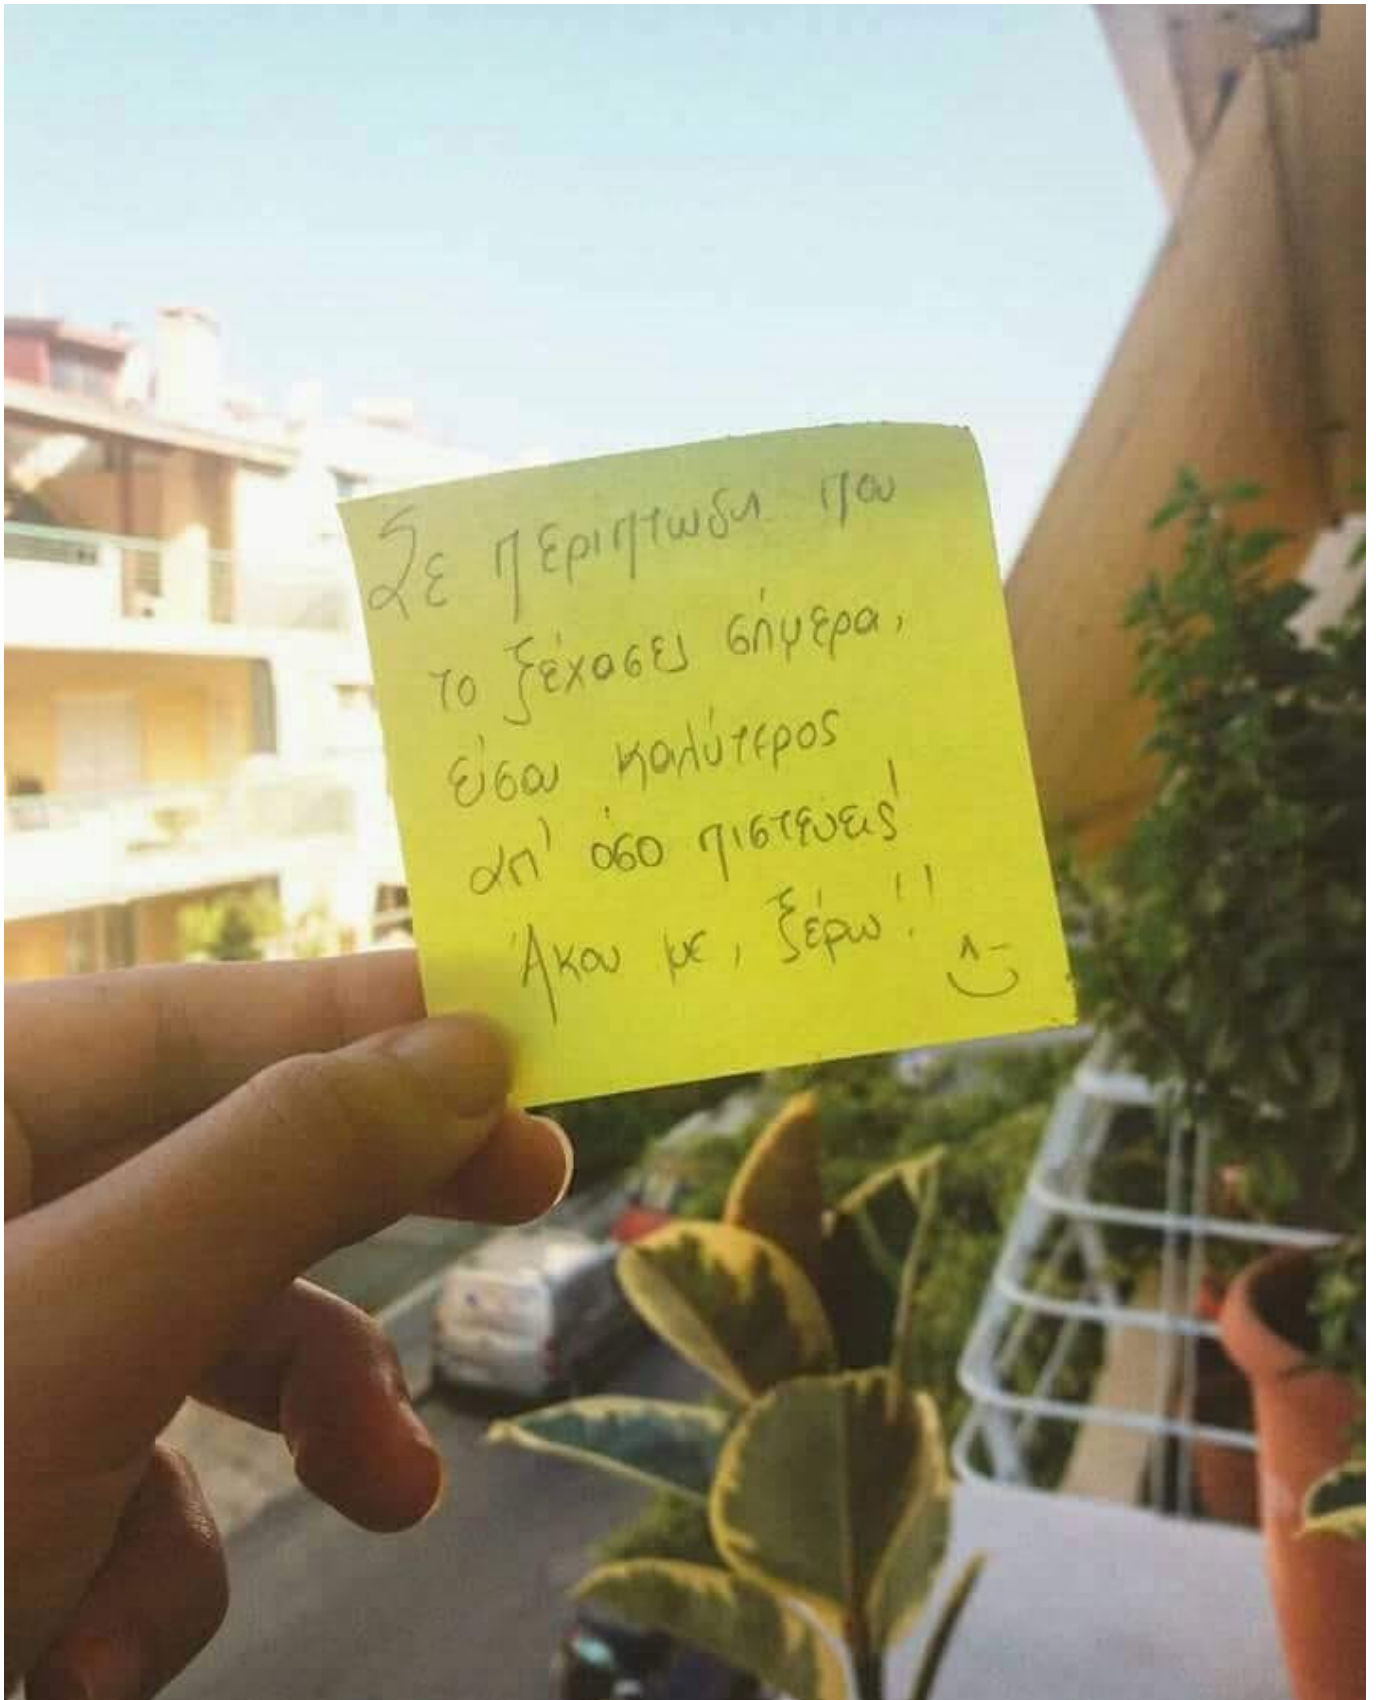 Σε περίπτωση που
το ξέχασες σήμερα,
είσαι καλύτερος
απ' όσο πιστεύεις!
Άκου με, ξέρω!!